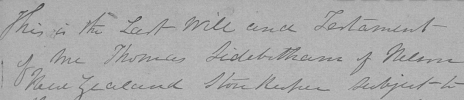 This is the Last Will and Testament
of me Thomas Sidebotham of Nelson
New Zealand Storekeeper subject to